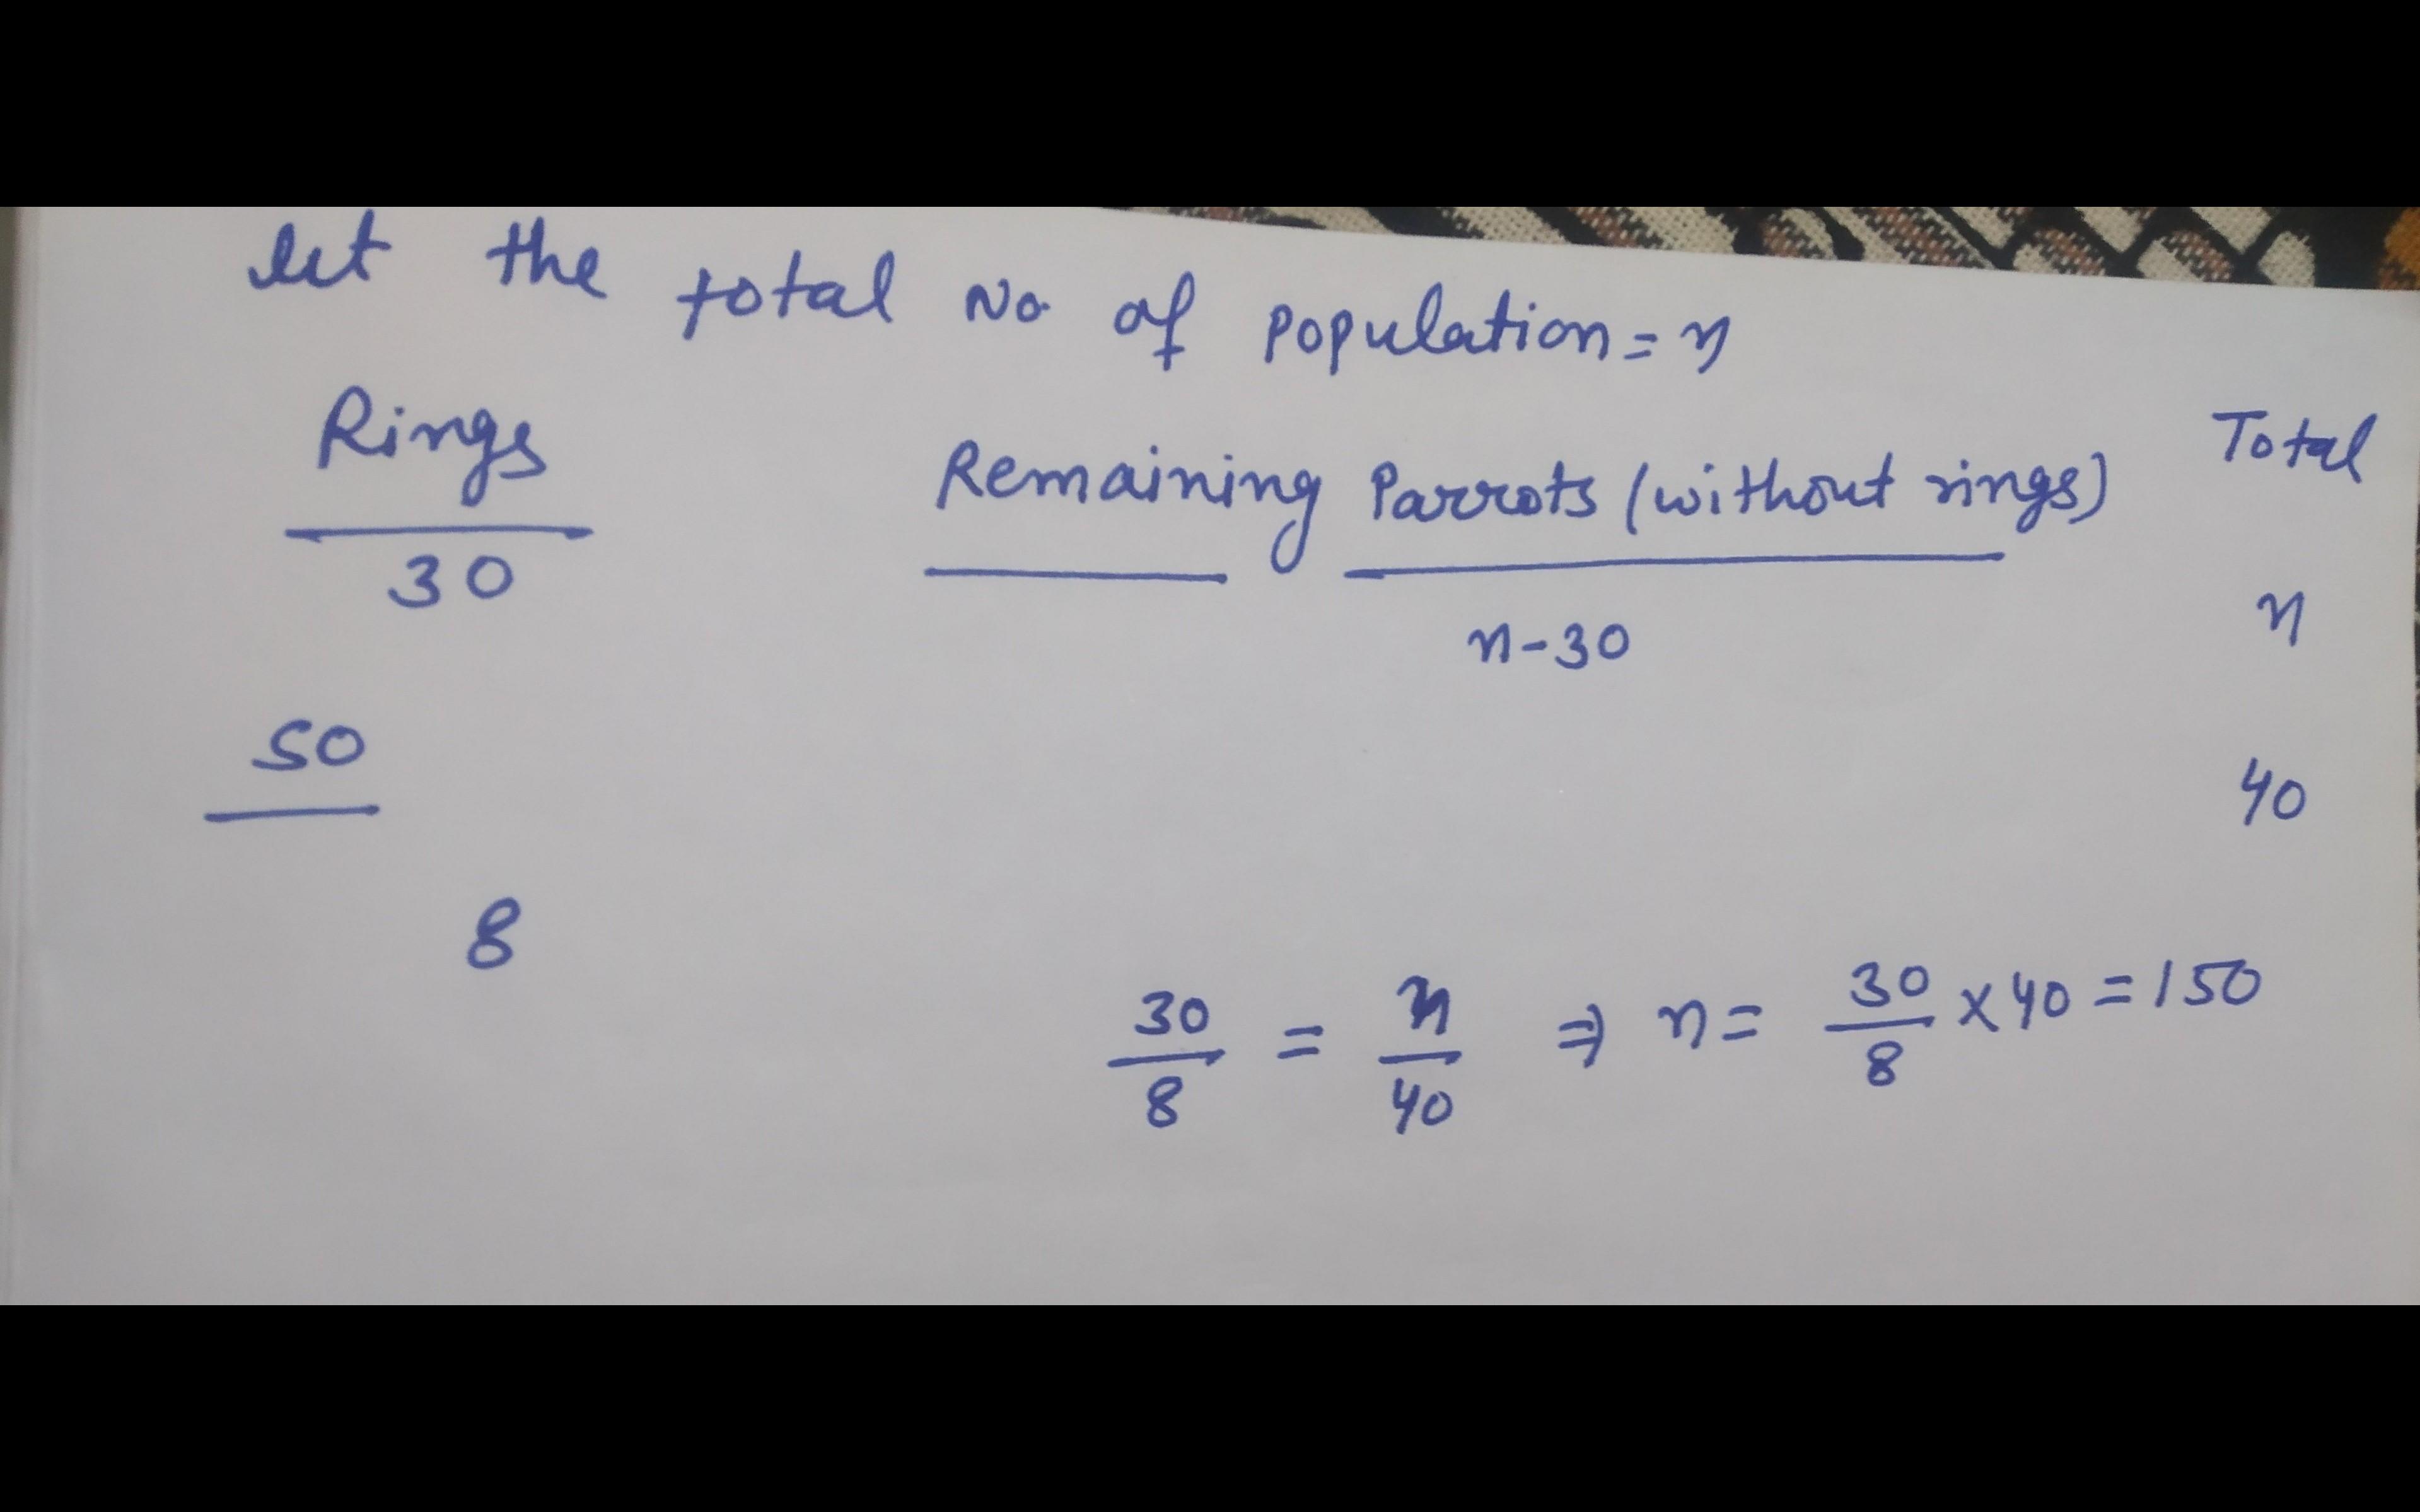 let the total No. of population = n
Rings Remaining Parrots (without rings) Total
30 n-30 n
50 40
8
30/8 = n/40 ⇒ n = 30/8 × 40 = 150